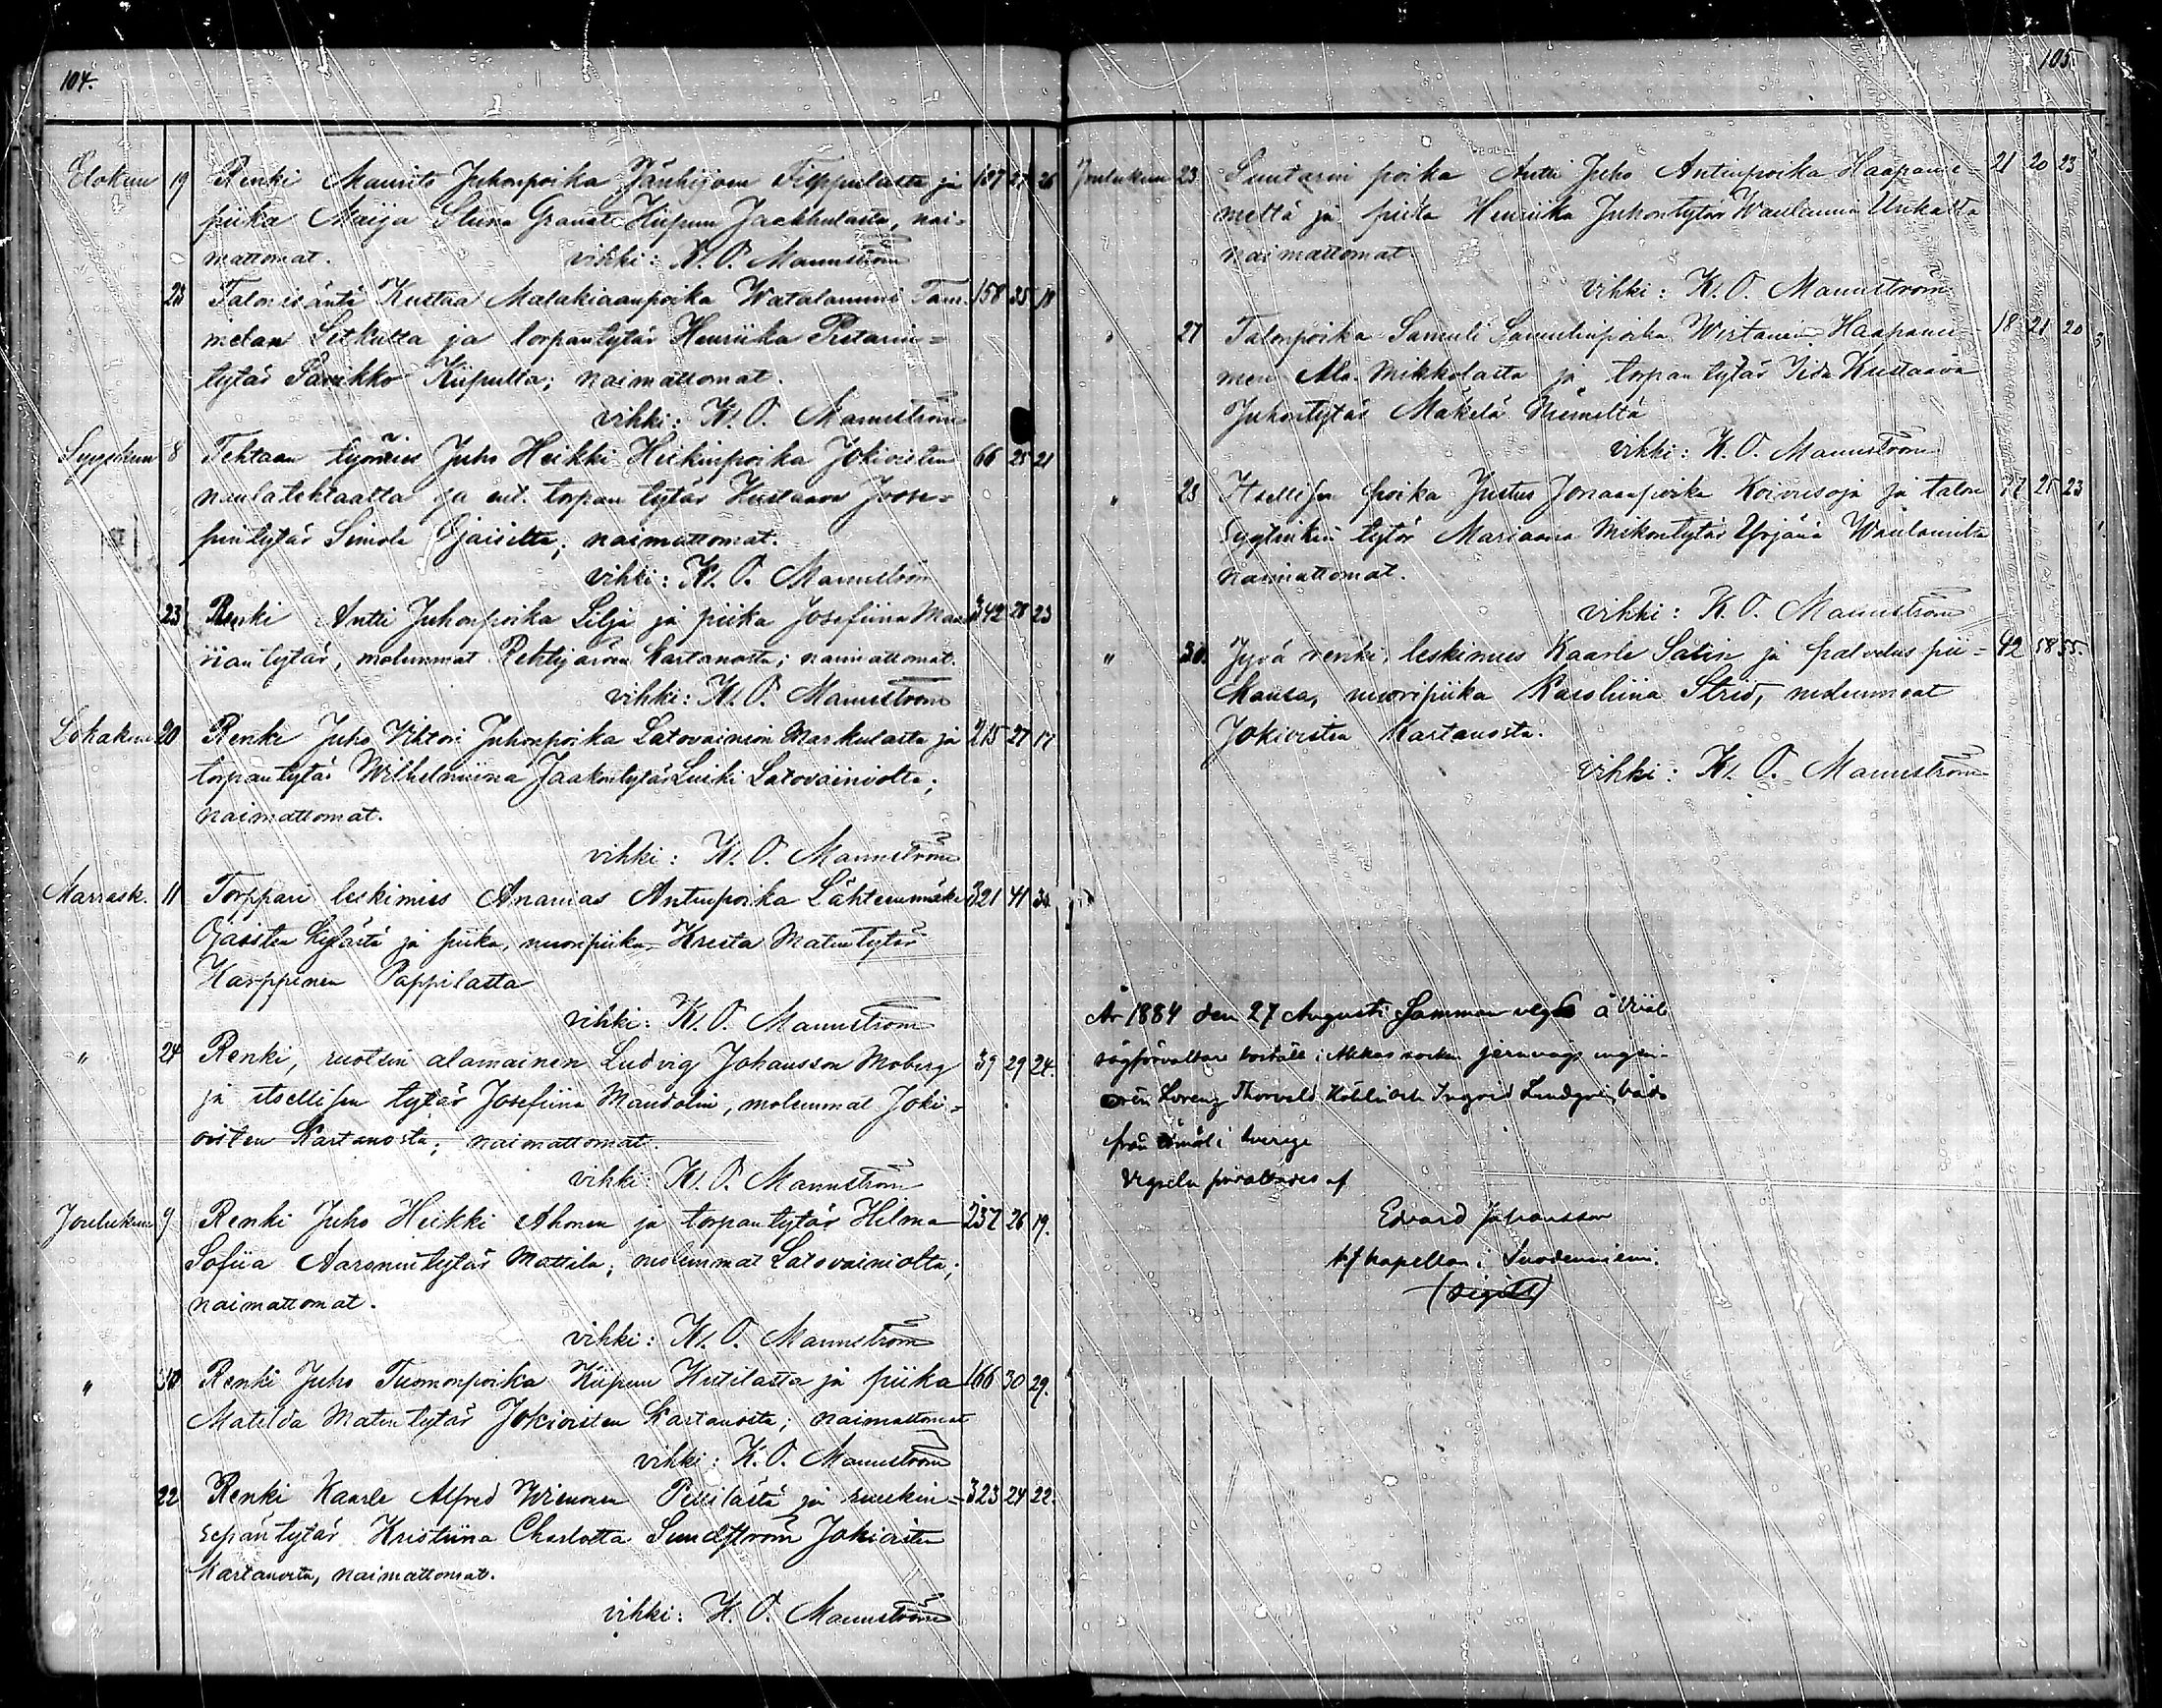 104.
Elokuu 19 Renki Maurits Juhonpoika Jänhijoen Seppälasta ja 187 27 26
piika Maija Stina Granat Kiipuun Jackkulasta, nai-
mattomat. vihki: K. O. Mannström
23 Talonisäntä Kustaa Malakiaanpoika Watalammi Tam- 158 35 18
melan Letkulta ja torpantytär Henriika
tytär Kiipulta; naimattomat.
vihki: K. O. Mannström
Syyskuu 8 Tehtaan työmies Juho Heikki Heikinpoika Jokioisten 66 25 21
naulatehtaalta ja ent. torpan tytär Kustaava Joose-
pintytär Simola Ojaisilta; naimattomat.
vihki: K. O. Mannström
23 Renki Antti Juhonpoika Lilja ja piika Josefiina Maa- 342 28 23
riantytär, molemmat Rehtijärven kartanosta; naimattomat.
vihki: K. O. Mannström
Lokakuu 20 Renki Juho Viktori Juhonpoika Latovainion Markulasta ja 215 27 17
torpantytär Wilhelmiina Jaakontytär Luiki Latovainiolta;
naimattomat.
vihki: K. O. Mannström
Marrask. 11 Torppari leskimies Ananias Antinpoika Lähteenmäki 321 41 34
Ojaisten kylästä ja piika, nuoripiika Kresta Matintytär
Karppinen Pappilasta
vihki: K. O. Mannström
" 24 Renki, ruotsin alamainen Ludvig Johansson Moberg 39 29 24.
ja itsellisen tytär Josefiina Mandolin, molemmat Joki-
oisten Kartanosta; naimattomat.
vihki: K. O. Mannström
Joulukuu 9 Renki Juho Heikki Ahonen ja torpantytär Hilma 237 26 19.
Sofiia Aaronintytär Mattila; molemmat Latovainiolta;
naimattomat.
vihki: K. O. Mannström
" 30 Renki Juho Tuomonpoika Kiipuun Hutilasta ja piika 166 30 29.
Matilda Matintytär Jokioisten kartanosta; naimattomat
vihki: K. O. Mannström
22 Renki Kaarle Alfred Wienonen Pellilästä ja ruukin- 323 24 22.
sepän tytär Kristiina Charlotta Sundström Jokioisten
Kartanosta, naimattomat.
vihki: K. O. Mannström
105.
Joulukuu 23 Suutarin poika Antti Juho Antinpoika Haapanie- 21 20 23
meltä ja piika Henriika Juhontytär Waulammin Uusikalta
naimattomat.
vihki: K. O. Mannström
" 27 Talonpoika Samuli Samulinpoika Wirtanen Haapanie- 18 21 20
men Ala-Mikkolasta ja torpan tytär Iida Kustaava
Juhontytär Mäkelä Niemeltä
vihki: K. O. Mannström
" 28 Itsellisen poika Justus Jonaanpoika Koivusoja ja talon 77 25 23
syytinkin tytär Mariaana Mikontytär Yrjänä Waulamilta
naimattomat.
vihki: K. O. Mannström
" 30. Jyvä renki, leskimies Kaarle Salin ja palvelus pii- 42 58 55.
kansa, nuoripiika Karoliina Strid, molemmat
Jokioisten Kartanosta.
vihki: K. O. Mannström
År 1884 den 27 Augusti Samman vigts å
sågförvaltare boställe i socken jernvägs ingeni-
ören Lorenz Thorvald och Ingrid Lundqvist, båda
från Åmål i Sverige
Vigseln förrättades af
Edvard Johansson
tf kapellan i Suodenniemi.
(sigill)